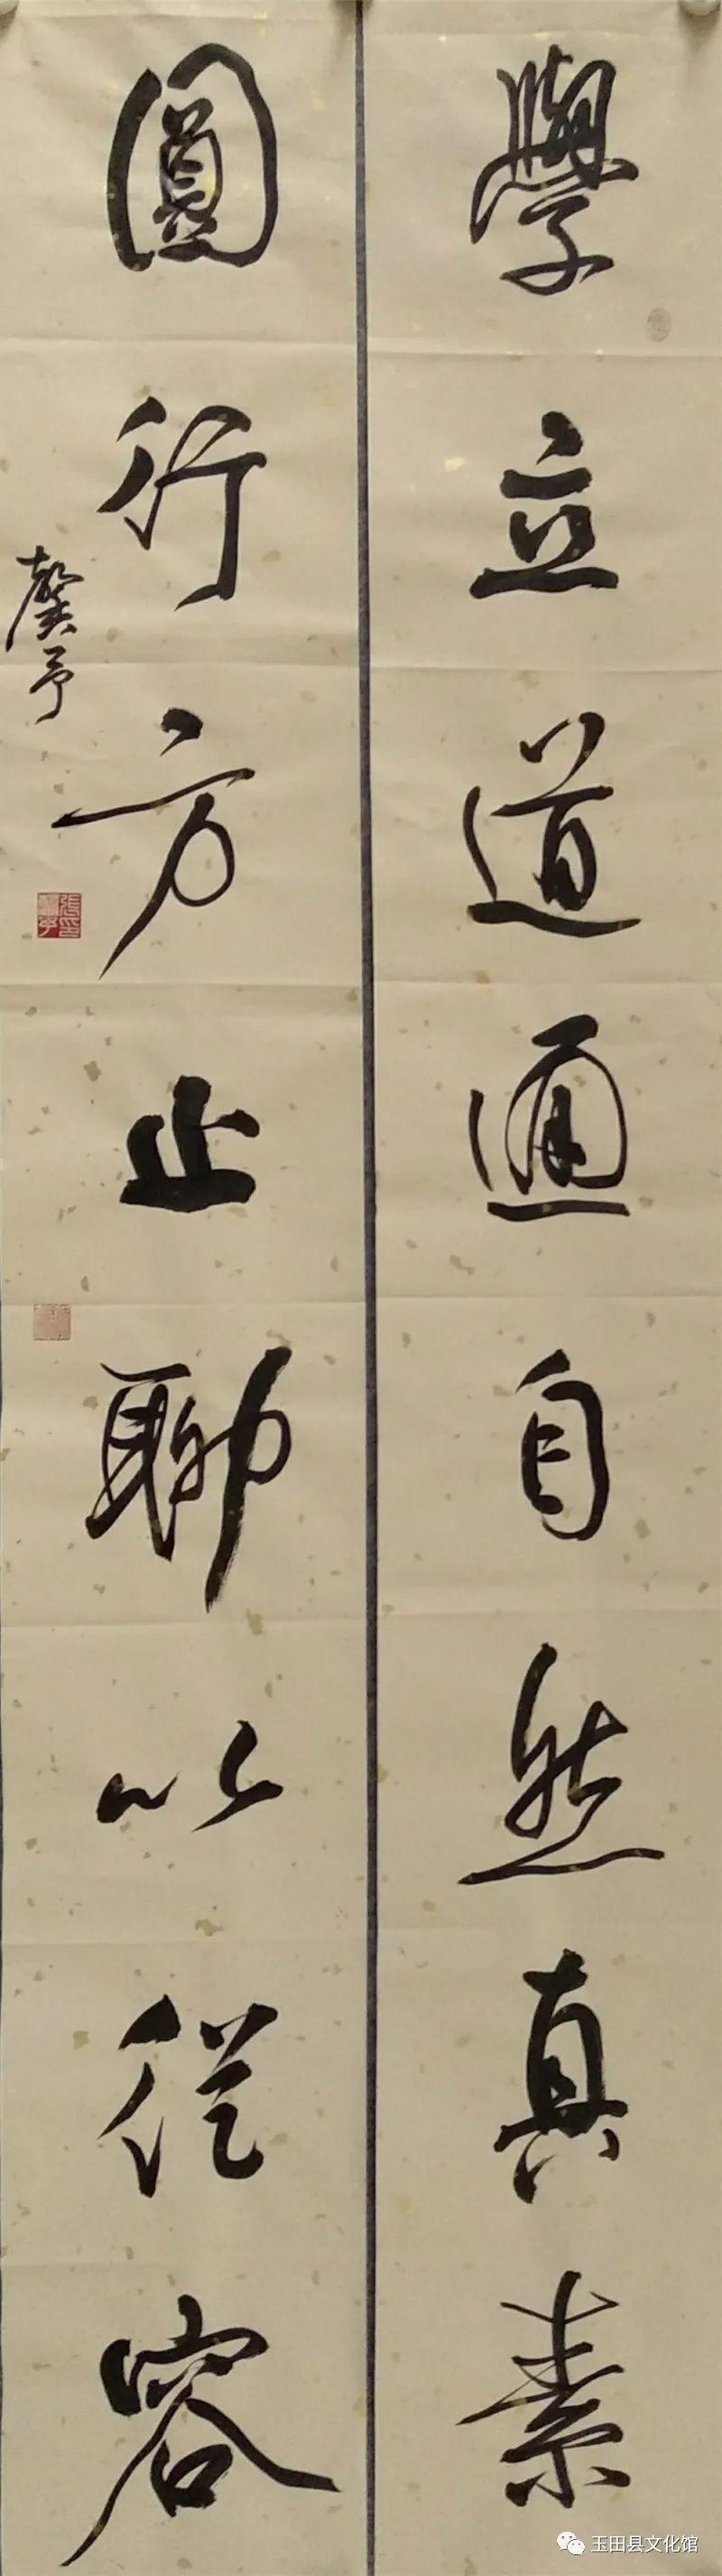 學立道通自然真素
圓行方止聊以從容
馨予
玉田县文化馆